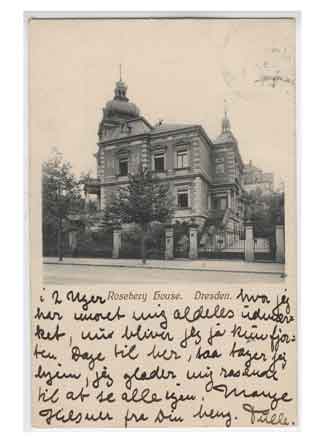 Rosebery House. Dresden.
i 2 Uger hvor jeg
har moret mig aldeles udmær-
ket, nu bliver jeg jo kun fjor-
ten Dage til her, saa tager jeg
hjem, jeg glæder mig rasende
til at se alle igen. Mange
Hilsner fra Din heng. Tulle.